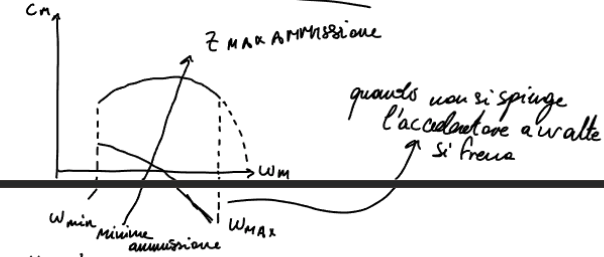 CM
Z MAX AMMISSIONE
quando non si spinge
l'acceleratore a volte
si frena
ωm
ωmin
minima
ammissione
ωMAX